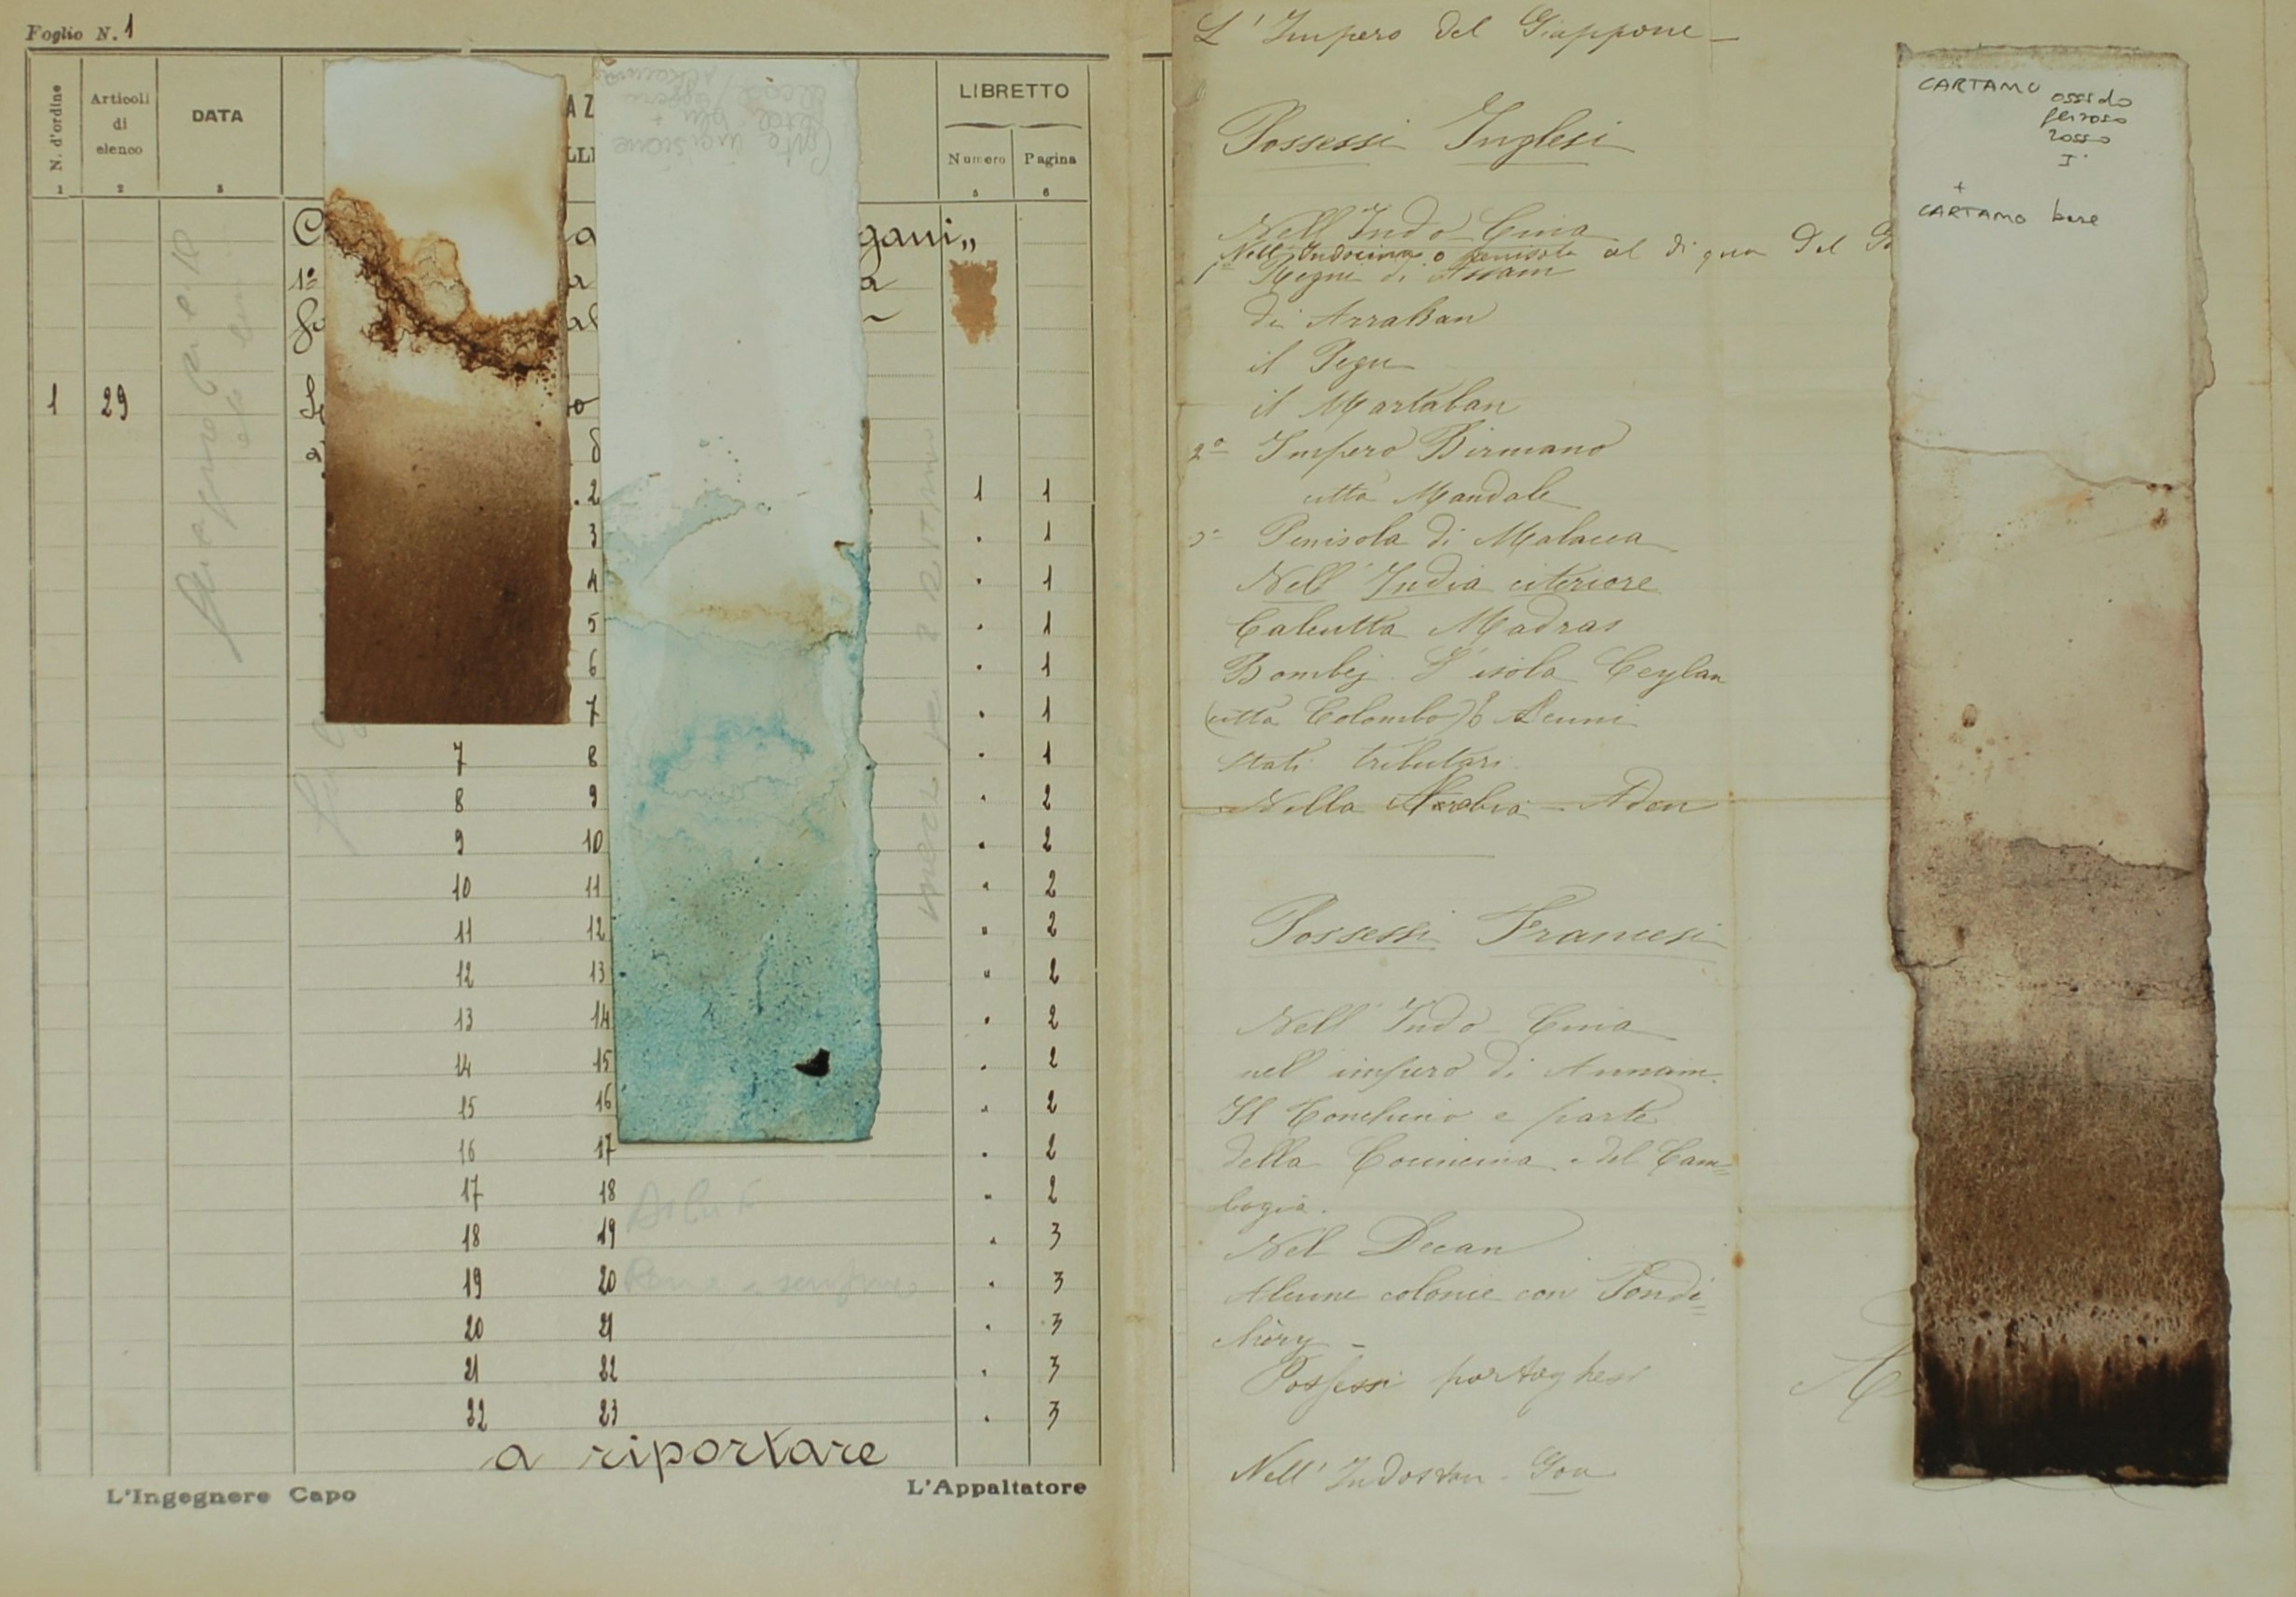 Foglio N. 1
N. d'ordine
Articoli
di
elenco
DATA
AZ
LLE
LIBRETTO
Numero
Pagina
1
2
3
5
6
gani„
1º
1 29
. 2 1 1
3 . 1
4 . 1
5 . 1
6 . 1
7 . 1
7 8 . 1
8 9 . 2
9 10 . 2
10 11 . 2
11 12 . 2
12 13 " 2
13 14 . 2
14 15 . 2
15 16 . 2
16 17 . 2
17 18 " 2
18 19 . 3
19 20 . 3
20 21 . 3
21 22 . 3
22 23 . 3
a riportare
L'Ingegnere Capo
L'Appaltatore
L'Impero del Giappone –
Possessi Inglesi
Nell'Indo-Cina
Nell'Indocina o penisola al di qua del G
Regno di Assam
di Arrakan
il Pegu
il Martaban
2º Impero Birmano
città Mandale
3º Penisola di Malacca
Nell'India citeriore
Calcutta Madras
Bombej. L'isola Ceylan
(città Colombo)
stati tributari
Nella Arabia – Aden
Possessi Francesi
Nell'Indo-Cina
nell'impero di Annam.
Il Tonchino e parte
della Cocincina e del Cam=
bogia.
Nel Decan
Alcune colonie con Pondi=
chéry –
Possessi portoghesi
Nell'Indostan – Goa
CARTAMO ossido
ferroso
rosso
I°
+
CARTAMO base